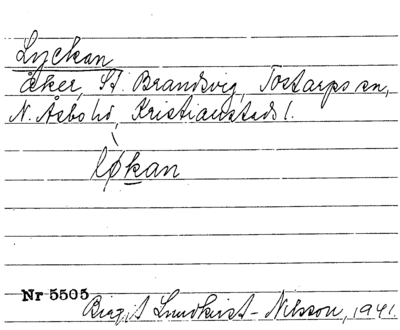 Lyckan
åker, St. Brandsvig, Tostarps sn,
N. Åsbo hd, Kristianstads l.
løkan
Nr 5505
Birgit Lundkvist-Nilsson, 1941.